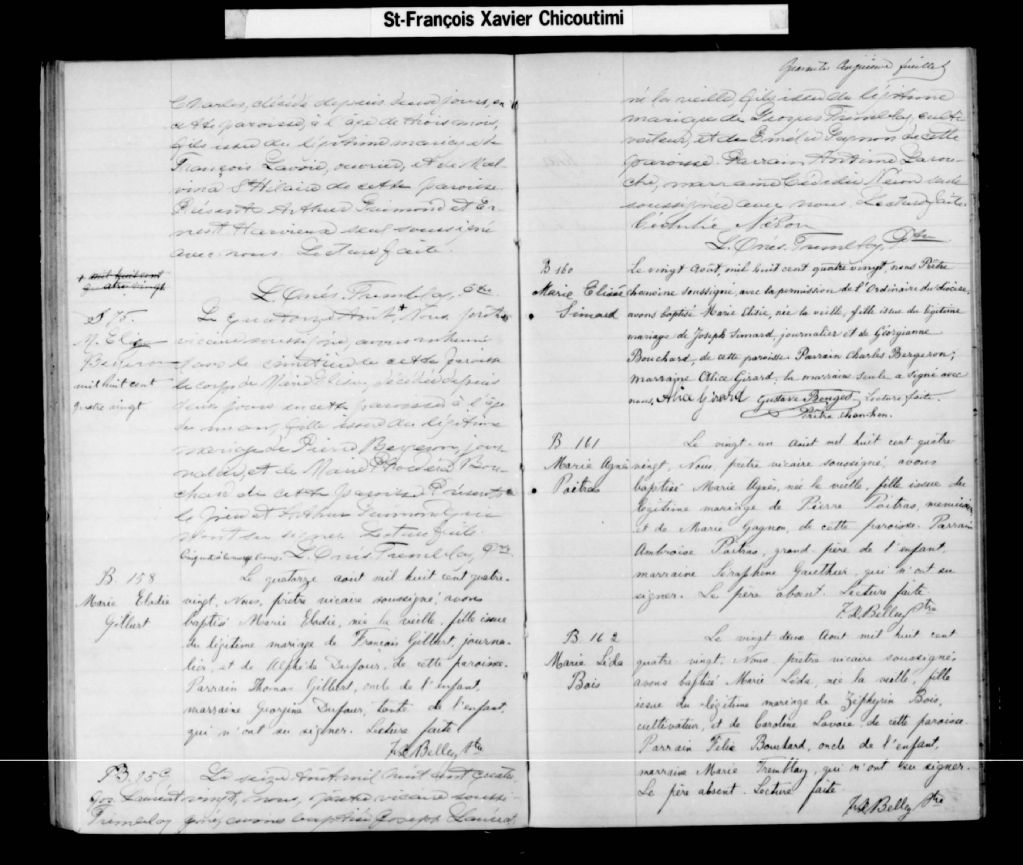 St-François Xavier Chicoutimi
Charles, décédé depuis deux jours, en
cette paroisse, à l'âge de trois mois,
fils issu du légitime mariage de
François Lavoie, ouvrier, et de Mal-
vina St Hilaire de cette paroisse.
Présents Arthur Guimond et Er-
nest Harvieux seul soussigné
avec nous. Lecture faite.
L. Onés. Tremblay, Ptre
+ mil huit cent
quatre vingt
S 75.
M. Elise
Bergeron
mil huit cent
quatre vingt
Le quatorze Août + Nous prêtre
vicaire soussigné, avons inhumé
dans le cimetière de cette paroisse
le corps de Marie Elise, décédée depuis
deux jours en cette paroisse à l'âge
fille issue du légitime
mariage de Pierre Bergeron, jour-
nalier, et de Marie Bou-
chard de cette paroisse Présents
le père et Arthur Guimond qui
n'ont su signer. Lecture faite.
L. Onés Tremblay, Ptre
B. 158
Marie Elodie
Gilbert
Le quatorze août mil huit cent quatre-
vingt, Nous, prêtre vicaire soussigné, avons
baptisé Marie Elodie, née la veille, fille issue
du légitime mariage de François Gilbert, journa-
lier, et de Alphéda Dufour, de cette paroisse.
Parrain Thomas Gilbert, oncle de l'enfant,
marraine Georgina Dufour, tante de l'enfant,
qui n'ont su signer. Lecture faite
F. X. Belley Ptre
B. 159
Jos Laurent
Tremblay
Le seize Août mil huit cent quatre
vingt, nous, prêtre vicaire soussi-
gné, avons baptisé Joseph Laurent,
Quarante cinquième feuillet
né la veille, fils issu du légitime
mariage de Georges Tremblay, culti-
vateur, et de Emélie Gagnon de cette
paroisse. Parrain Antoine Larou-
che, marraine Cécidie Néron seule
soussignée avec nous. Lecture faite.
Néron
L. Onés. Tremblay, Ptre
B 160
Marie Elisée
Simard
Le vingt Août, mil huit cent quatre vingt, nous Prêtre
chanoine soussigné, avec la permission de l'Ordinaire du diocèse,
avons baptisé Marie Elisée, née la veille, fille issue du légitime
mariage de Joseph Simard, journalier et de Georgianne
Bouchard, de cette paroisse. Parrain Charles Bergeron;
marraine Alice Girard, la marraine seule a signé avec
nous, Alice Girard Gustave Bouget, Lecture faite.
Prêtre chanoine.
B 161
Marie Agnès
Poitras
Le vingt-un Août mil huit cent quatre
vingt, Nous, prêtre vicaire soussigné, avons
baptisé Marie Agnès, née la veille, fille issue du
légitime mariage de Pierre Poitras, menuisier,
et de Marie Gagnon, de cette paroisse. Parrain
Ambroise Poitras, grand-père de l'enfant,
marraine Séraphine Gauthier, qui n'ont su
signer. Le père absent. Lecture faite
F. X. Belley Ptre
B 162
Marie Léda
Bois
Le vingt deux Août mil huit cent
quatre vingt, Nous, prêtre vicaire soussigné,
avons baptisé Marie Léda, née la veille, fille
issue du légitime mariage de Zéphyrin Bois,
cultivateur, et de Caroline Lavoie, de cette paroisse.
Parrain Félix Bouchard, oncle de l'enfant,
marraine Marie Tremblay, qui n'ont su signer.
Le père absent. Lecture faite
F. X. Belley Ptre